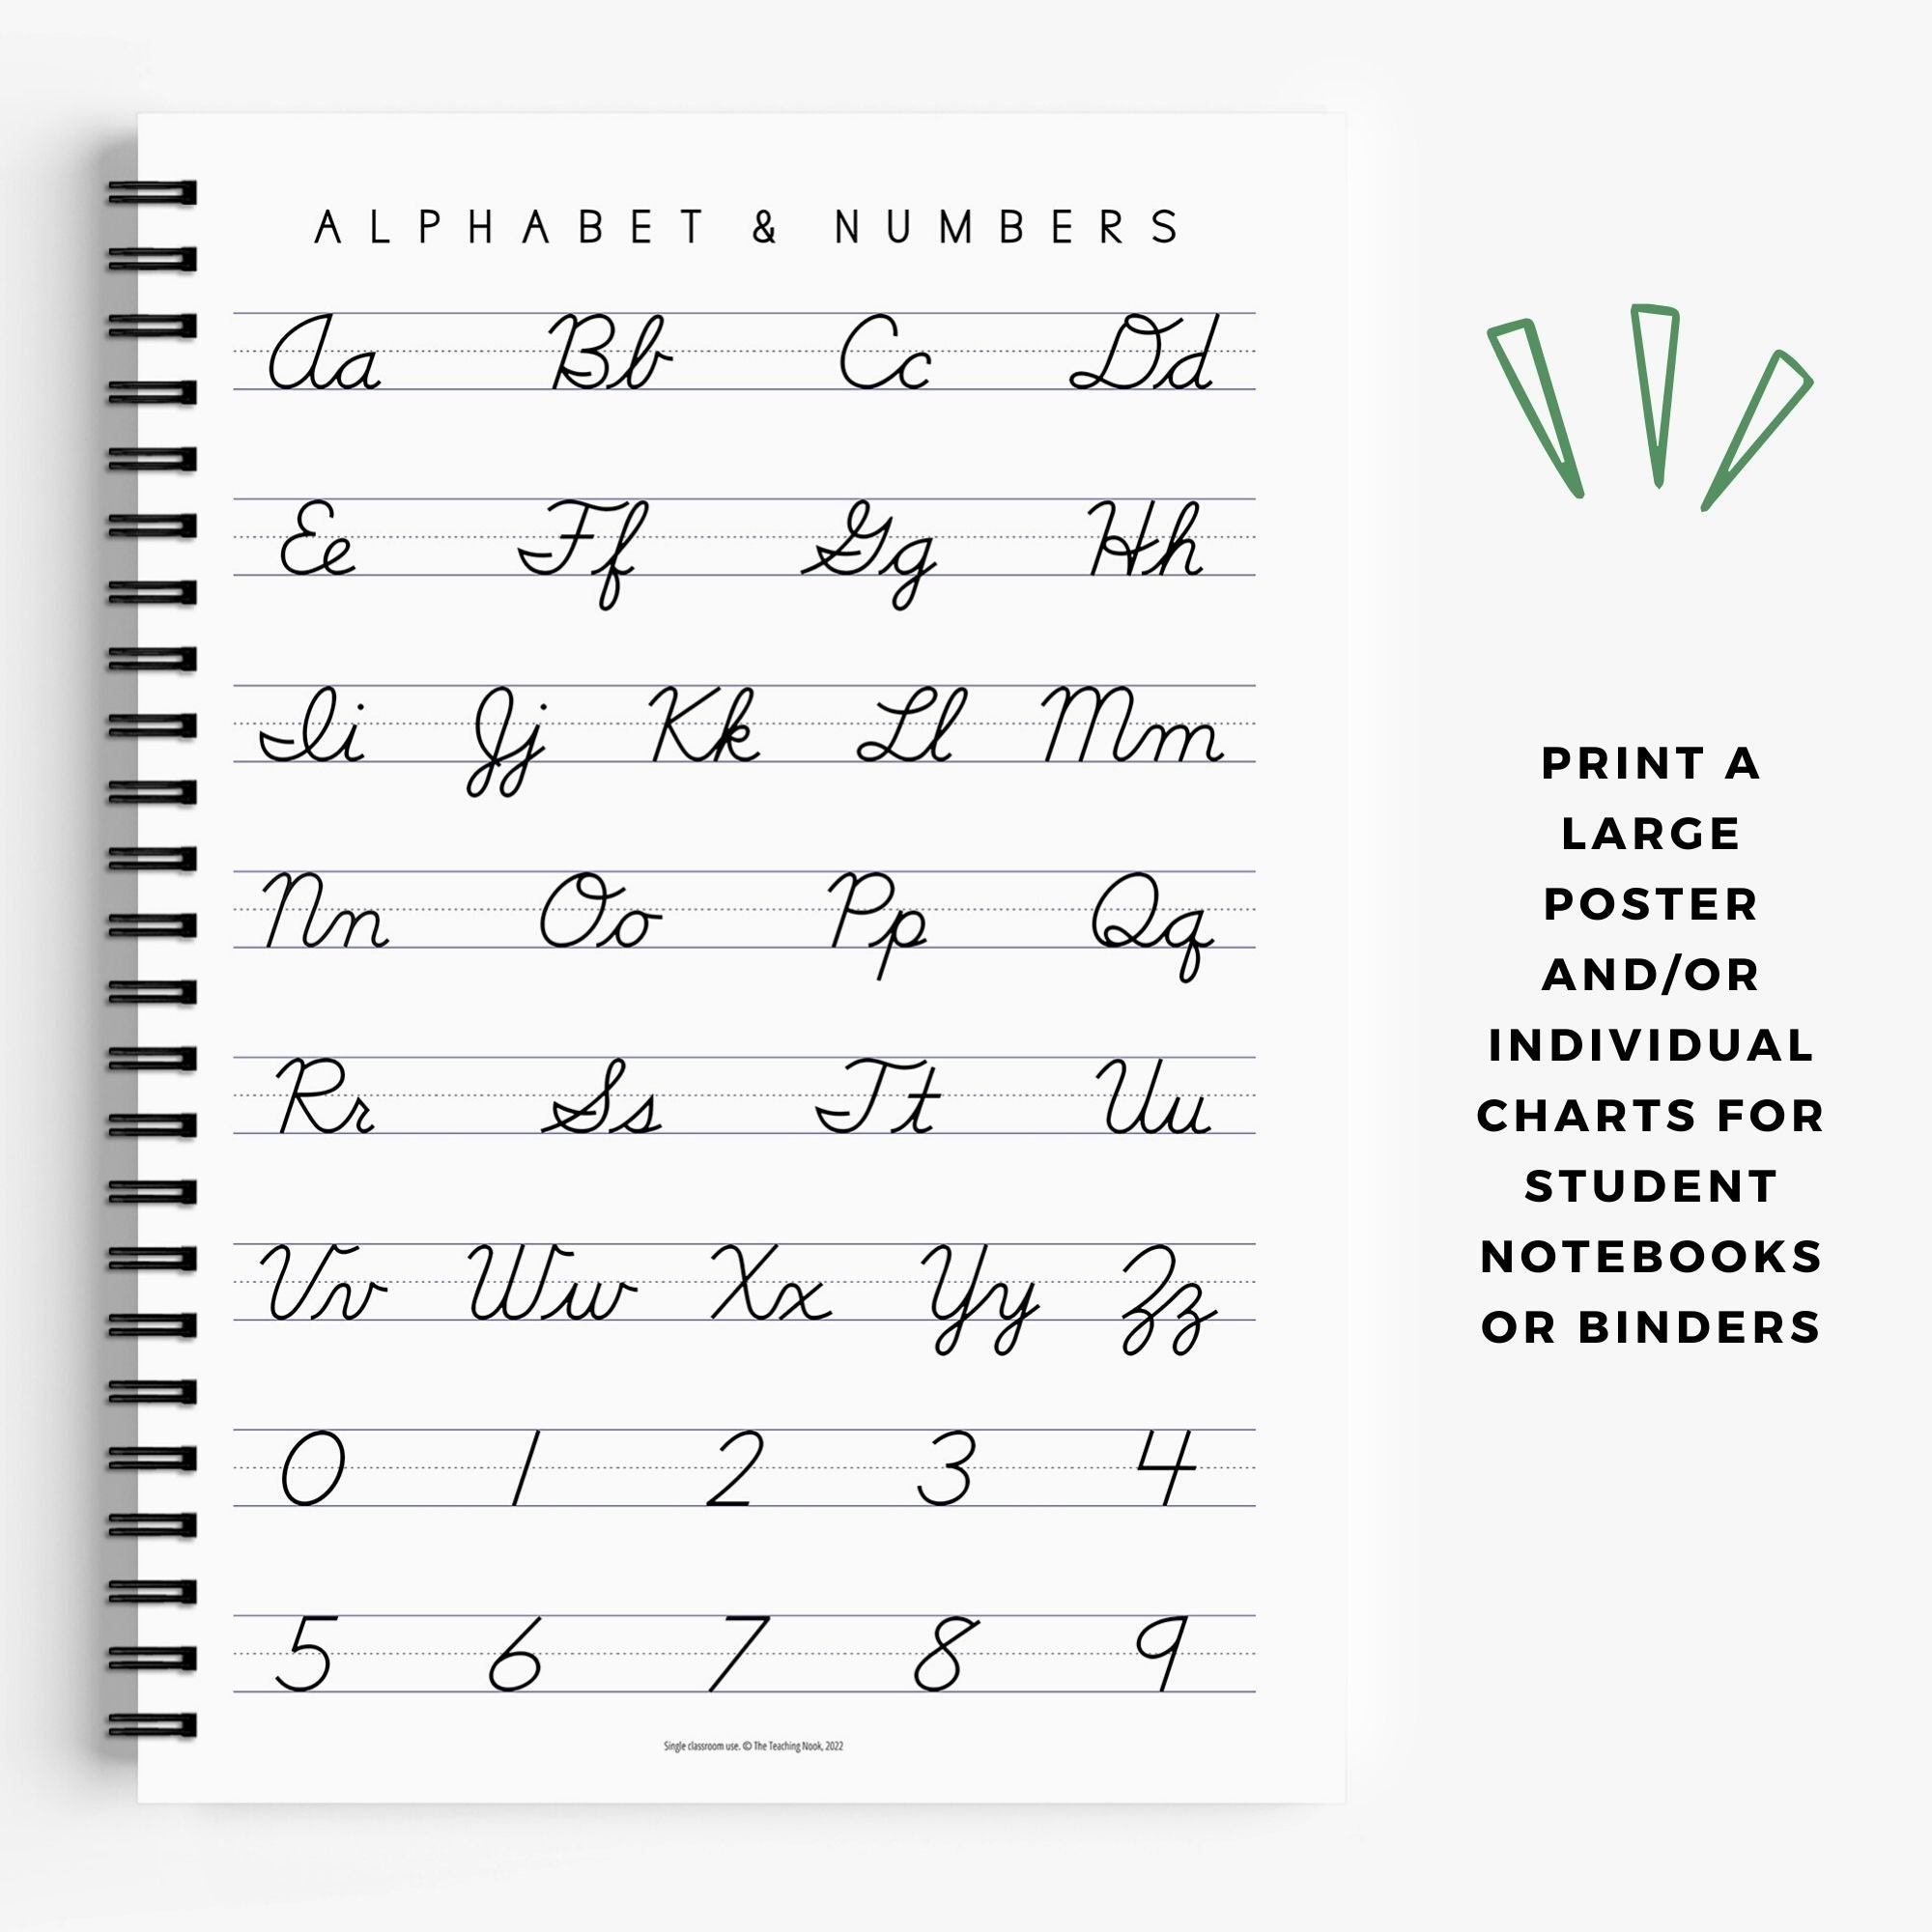 ALPHABET & NUMBERS
Aa Bb Cc Dd
Ee Ff Gg Hh
Ii Jj Kk Ll Mm
Nn Oo Pp Qq
Rr Ss Tt Uu
Vv Ww Xx Yy Zz
0 1 2 3 4
5 6 7 8 9
Single classroom use. © The Teaching Nook, 2022
PRINT A
LARGE
POSTER
AND/OR
INDIVIDUAL
CHARTS FOR
STUDENT
NOTEBOOKS
OR BINDERS